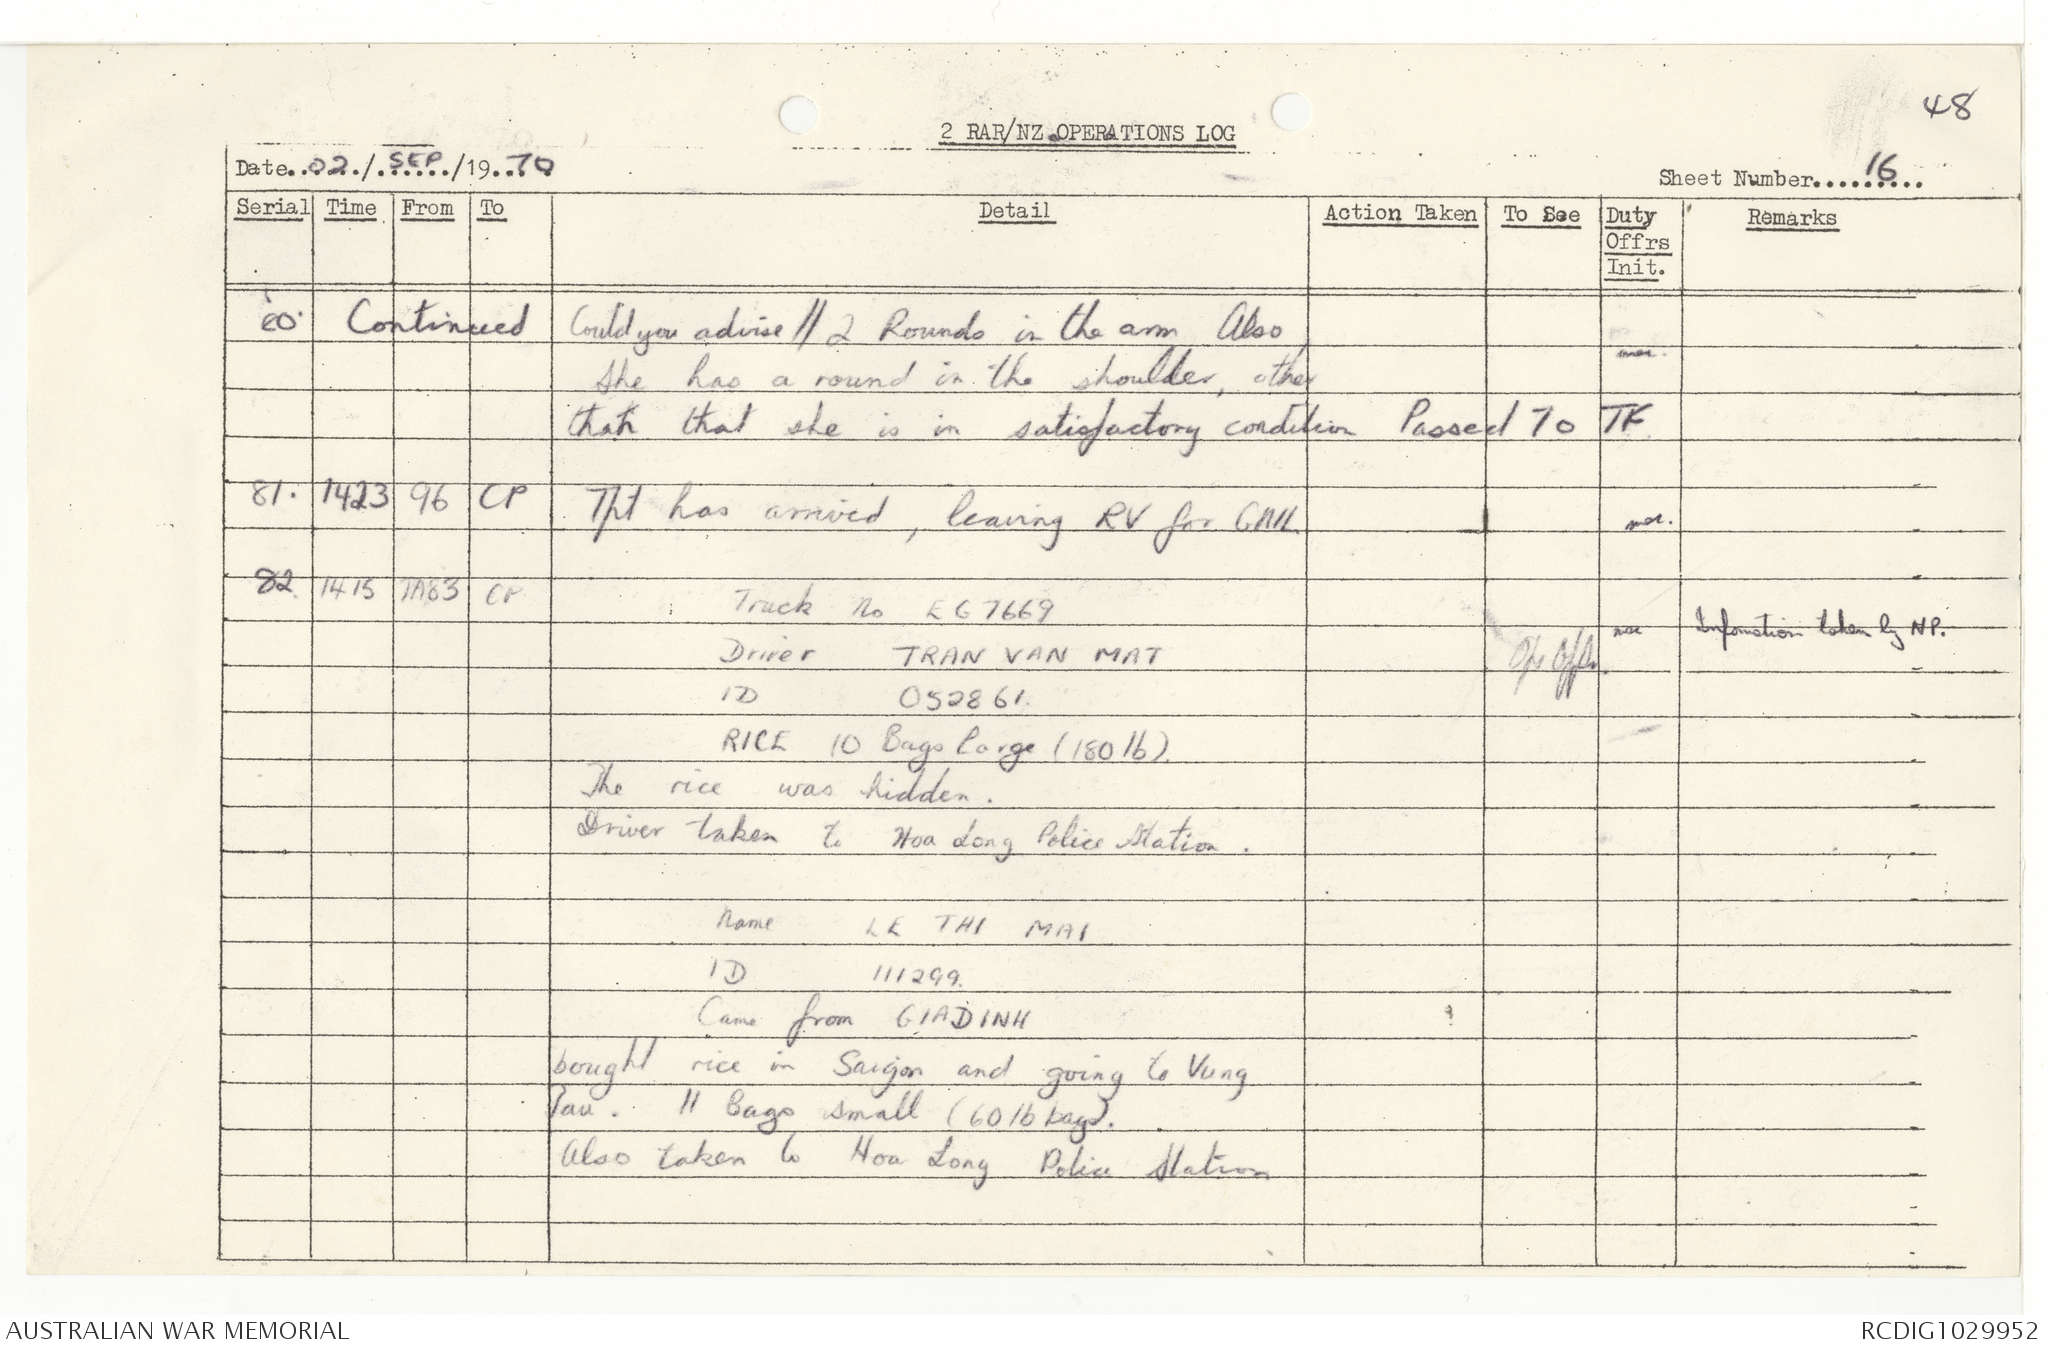 48
2 RAR/NZ OPERATIONS LOG
Date..02./.SEP./19.70
Sheet Number.....16...
Serial Time From To Detail Action Taken To See Duty Offrs Init. Remarks
80. Continued Could you advise // 2 Rounds in the arm Also
she has a round in the shoulder, other
than that she is in satisfactory condition Passed To TF
81. 1423 96 CP Tpt has arrived, leaving RV for
82. 1415 TA83 CP Truck No EG7669
Infomation taken by NP.
Driver TRAN VAN MAT
ID 052861.
RICE 10 Bags large (180 lb).
The rice was hidden.
Driver taken to Hoa Long Police Station.
Name LE THI MAI
ID 111299.
Came from GIADINH
bought rice in Saigon and going to Vung
Tau. 11 Bags small (60 lb bags).
Also taken to Hoa Long Police Station
AUSTRALIAN WAR MEMORIAL
RCDIG1029952